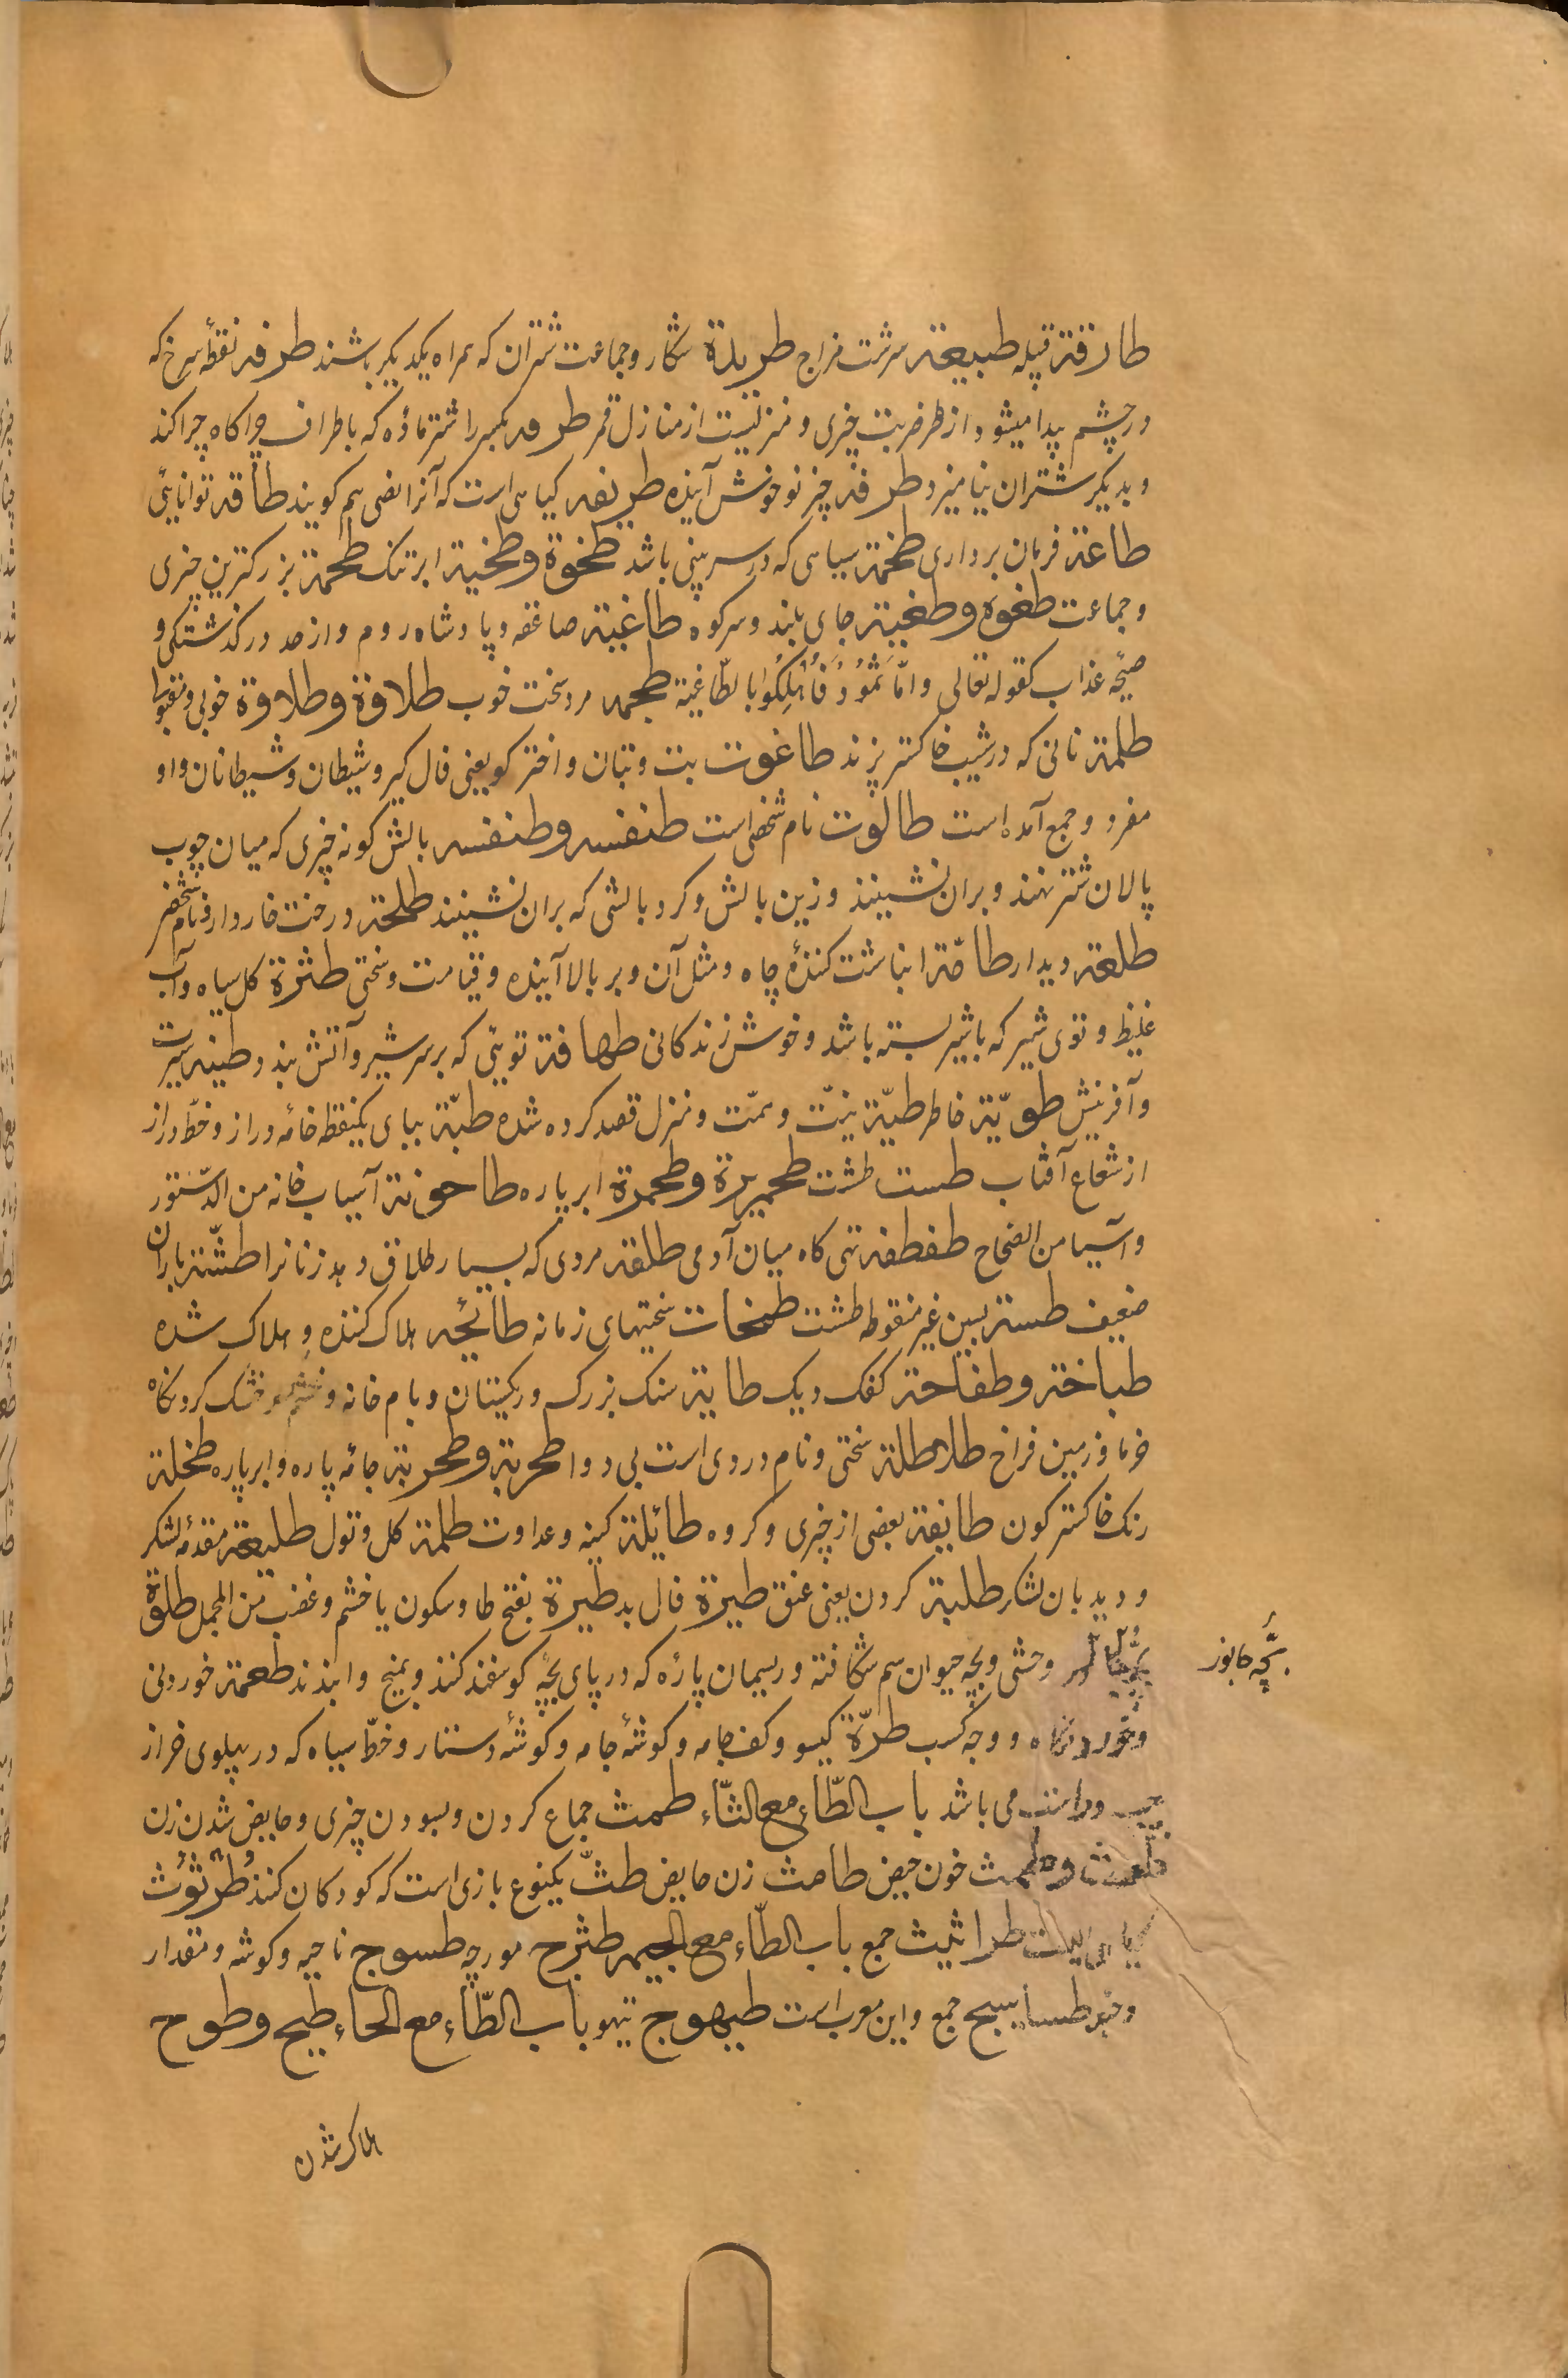 طارقة قپیله طبیعة سرشت مزاج طریدة شکار و جماعت شتران که همراه یکدیگر باشند طرفه نقطهٔ سرخ که
در چشم پیدا میشود از طرف ضربت چیزی و منزلیست از منازل قمر طرفه بکسر را شتر مادهٔ که باطراف چراکاه چرا کند
و بدیکر شتران نیامیزد طرفه چیز نو خوش آینده طریفه کیاهی است که آنرا نصی هم کویند طاقة توانائی
طاعة فرمان برداری طخمة سیاهی که در سر بینی باشد طخوة و طخیة ابر تنک طحمة بزرکترین چیزی
و جماعت طغوه و طغیة جای بلند و سر کوه طاغیة صاعقه و پادشاه روم و از حد در گذشتگی و
صیحهٔ عذاب کقوله تعالی و امّا ثَمُودُ فَاُهْلِکُوا بالطّاغیة طحمه مرد سخت خوب طلاوة و طلاوة خوبی و تقبول
طلمة نانی که در شیب خاکستر پزند طاغوت بت و بتان و اختر کو یعنی فال کیر و شیطان و شیطانان و او
مفرد و جمع آمده است طالوت نام شخصی است طنفسه و طنفسه بالش کونه چیزی که میان چوب
پالان شتر نهند و بران نشینند و زین بالش و کرد بالشی که بران نشینند طلحة درخت خاردار و نام شخصی
طلعة دیدار طامّة انباشت کنندهٔ چاه و مثل آن و بر بالا آینده و قیامت و سختی طثرة کل سیاه و آب
غلیظ و توی شیر که با شیر بسته باشد و خوش زندکانی طهافة تویئی که بر سر شیر و آتش بندد طینه سیرت
و آفرینش طویّة خاطر طیّة نیّت و همّت و منزل قصد کرده شده طبّة ببای یکنقطه خامه دراز و خطّ دراز
از شعاع آفتاب طست طشت طحمیرة و طحمرة ابر پاره طاحونة آسیاب خانه من الدّستور
و آسیا من الصّحاح طفطفه تهی کاه میان آدمی طلقة مردی که بسیار طلاق دهد زنانرا طشّة باران
ضعیف طسة بسین غیر منقوطه طشت طخمات سختیهای زمانه طائحه هلاک کننده و هلاک شده
طباخة و طفاحة کفک دیک طایة سنک بزرک در ریکستان و بام خانه و خشک کردنگاه
خرما و زمین فراخ طلاطلة سختی و نام دردی است بی دوا طحربة و طحربة جامهٔ پاره و ابر پاره طخلة
رنک خاکستر کون طایفة بعضی از چیزی و کروه طائلة کینه و عداوت طلمة کل و تول طلیعة مقدمهٔ لشکر
و دیدبان لشکر طلبة کردن یعنی عنق طیرة فال بد طیرة بفتح طا و سکون یا خشم و غضب من المجمل طلوة
بچّهٔ جانور وحشی و بچه حیوان سم شکافته و ریسمان پارهٔ که در پای بچّه کوسفند کنند و بمیخ وا بندند طعمة خوردنی
و خوردنگاه و وجه کسب طرّة کیسو و کف جامه و کوشهٔ جامه و کوشهٔ دستار و خطّ سیاه که در پهلوی خر از
چپ و راست می باشد باب الطّاء مع الثّاء طمث جماع کردن و بسودن چیزی و حایض شدن زن
طمث و طمث خون حیض طامث زن حایض طثّ یکنوع بازی است که کودکان کنند طُرثُوث
کیاهی است طراثیث جمع باب الطّاء مع الجیم طثرج مورچه طسوج ناحیه و کوشه و مقدار
دو حبّه طساسیج جمع و این معرب است طیهوج تیهو باب الطّاء مع الحاء طیح و طوح
بچّه جانور
هلاک شدن